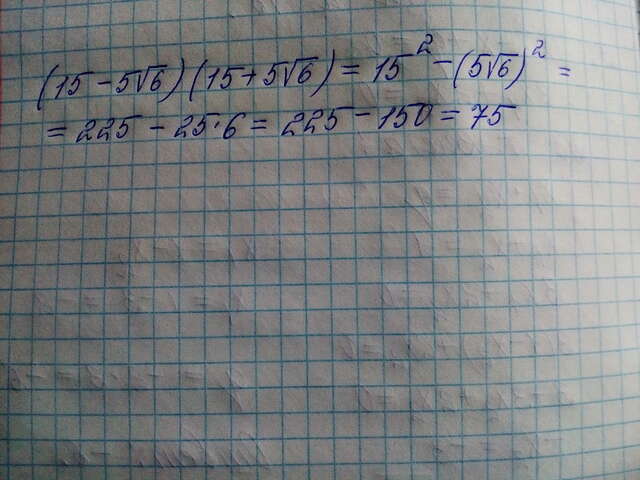 (15-5√6)(15+5√6)=15²-(5√6)²=
=225-25·6=225-150=75